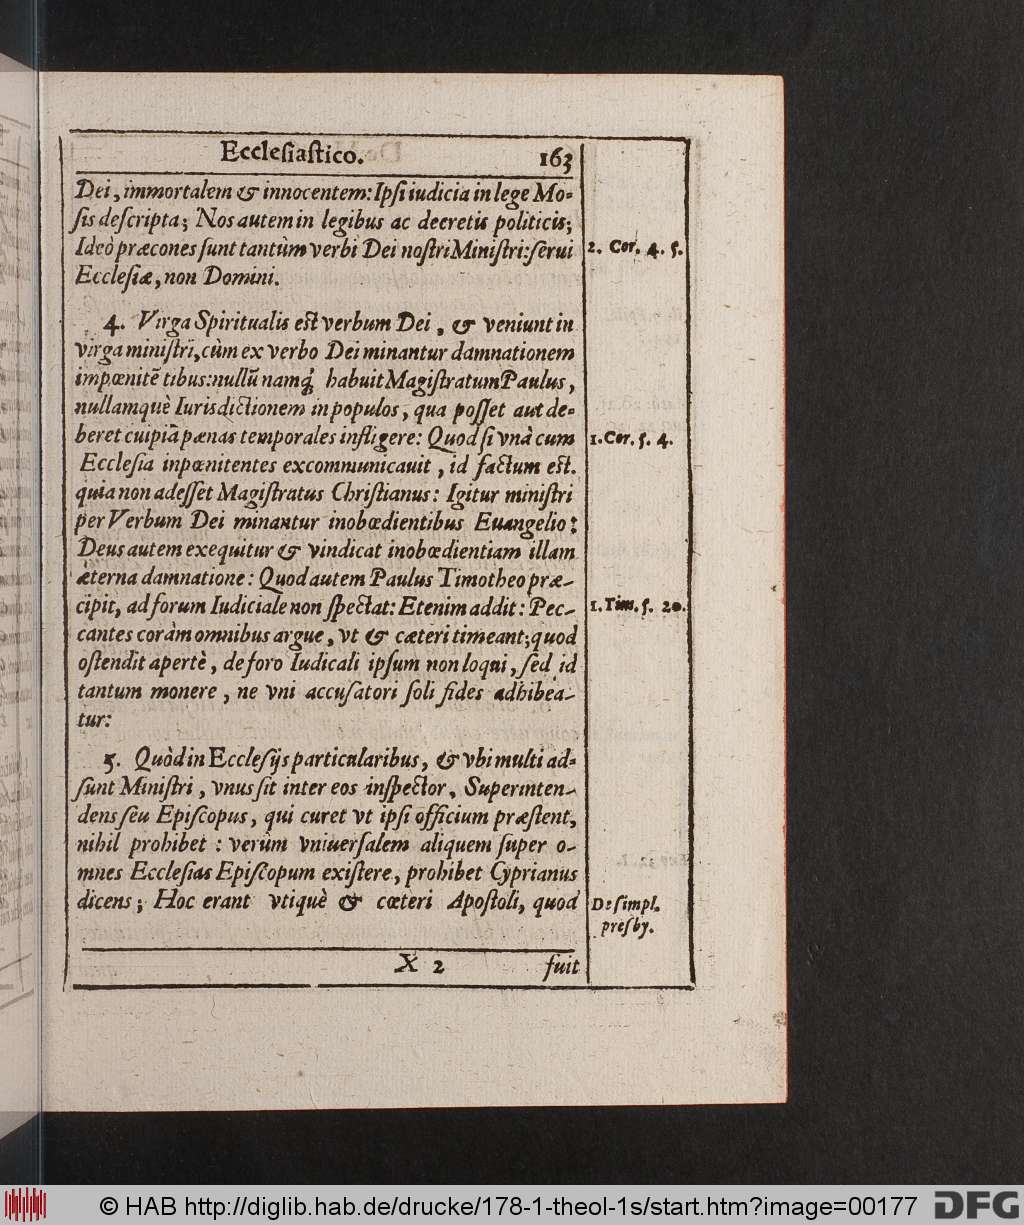 Ecclesiastico. 163
Dei, immortalem & innocentem: Ipsi iudicia in lege Mo-
sis descripta; Nos autem in legibus ac decretis politicis;
Ideò præcones sunt tantùm verbi Dei nostri Ministri: serui
Ecclesiæ, non Domini.
2. Cor. 4. 5.
4. Virga Spiritualis est verbum Dei, & veniunt in
virga ministri, cùm ex verbo Dei minantur damnationem
impœnitẽtibus: nullũ namq́; habuit Magistratum Paulus,
nullamquè Iurisdictionem in populos, qua posset aut de-
beret cuipiã pœnas temporales infligere: Quod si vnà cum
Ecclesia inpœnitentes excommunicauit, id factum est.
quia non adesset Magistratus Christianus: Igitur ministri
per Verbum Dei minantur inobœdientibus Euangelio:
Deus autem exequitur & vindicat inobœdientiam illam
æterna damnatione: Quod autem Paulus Timotheo præ-
cipit, ad forum Iudiciale non spectat: Etenim addit: Pec-
cantes coràm omnibus argue, vt & cæteri timeant; quod
ostendit apertè, de foro Iudicali ipsum non loqui, sed id
tantum monere, ne vni accusatori soli fides adhibea-
tur:
1. Cor. 5. 4.
1. Tim. 5. 20.
5. Quòd in Ecclesijs particularibus, & vbi multi ad-
sunt Ministri, vnus sit inter eos inspector, Superinten-
dens seu Episcopus, qui curet vt ipsi officium præstent,
nihil prohibet: verùm vniuersalem aliquem super o-
mnes Ecclesias Episcopum existere, prohibet Cyprianus
dicens; Hoc erant vtiquè & cœteri Apostoli, quod
De simpl.
presby.
X 2 fuit
© HAB http://diglib.hab.de/drucke/178-1-theol-1s/start.htm?image=00177
DFG